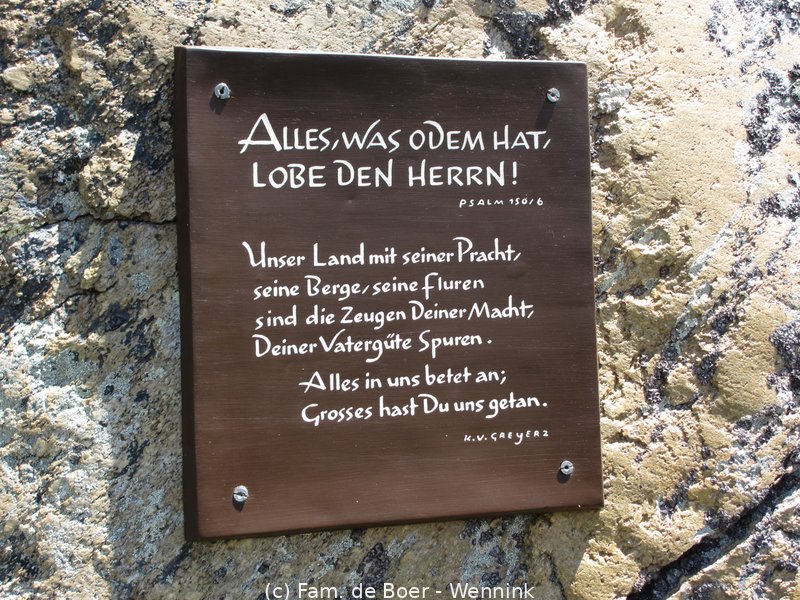 ALLES, WAS ODEM HAT,
LOBE DEN HERRN!
PSALM 150/6
Unser Land mit seiner Pracht,
seine Berge, seine Fluren
sind die Zeugen Deiner Macht,
Deiner Vatergüte Spuren.
Alles in uns betet an;
Grosses hast Du uns getan.
K.V. GREYERZ
(c) Fam. de Boer - Wennink